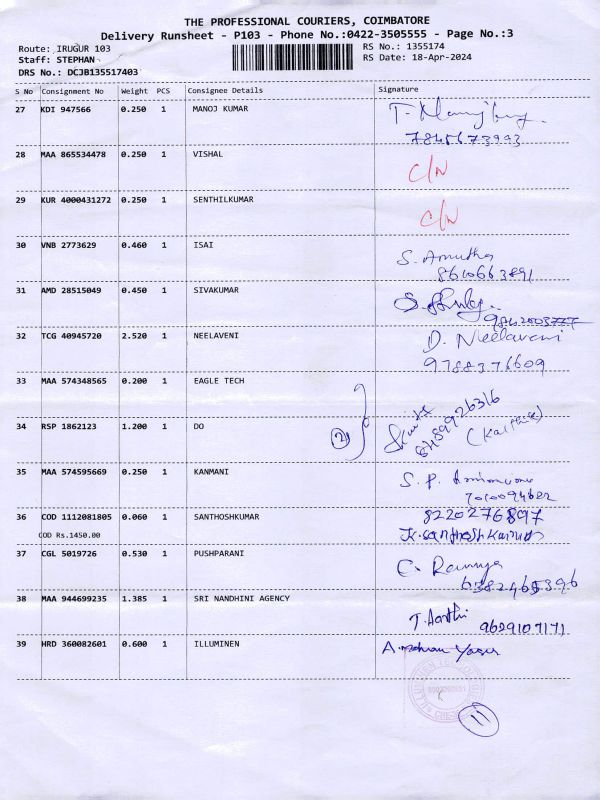 THE PROFESSIONAL COURIERS, COIMBATORE
Delivery Runsheet - P103 - Phone No.:0422-3505555 - Page No.:3
Route: IRUGUR 103
RS No.: 1355174
Staff: STEPHAN
RS Date: 18-Apr-2024
DRS No.: DCJB135517403
S No Consignment No Weight PCS Consignee Details Signature
27 KDI 947566 0.250 1 MANOJ KUMAR
7845673993
28 MAA 865534478 0.250 1 VISHAL C/N
29 KUR 4000431272 0.250 1 SENTHILKUMAR C/N
30 VNB 2773629 0.460 1 ISAI S. Amutha
8610663891
31 AMD 28515049 0.450 1 SIVAKUMAR
32 TCG 40945720 2.520 1 NEELAVENI D. Neelaveni
9788376609
33 MAA 574348565 0.200 1 EAGLE TECH
34 RSP 1862123 1.200 1 DO 2 8489926316
35 MAA 574595669 0.250 1 KANMANI S. P.
36 COD 1112081805 0.060 1 SANTHOSHKUMAR 8220276897
COD Rs.1450.00 K. Santhosh Kumar
37 CGL 5019726 0.530 1 PUSHPARANI C. Ramya
6382465396
38 MAA 944699235 1.385 1 SRI NANDHINI AGENCY T. Aarthi 9629107171
39 HRD 360082601 0.600 1 ILLUMINEN
11